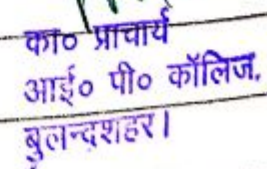 का० प्राचार्य
आई० पी० कॉलिज,
बुलन्दशहर।